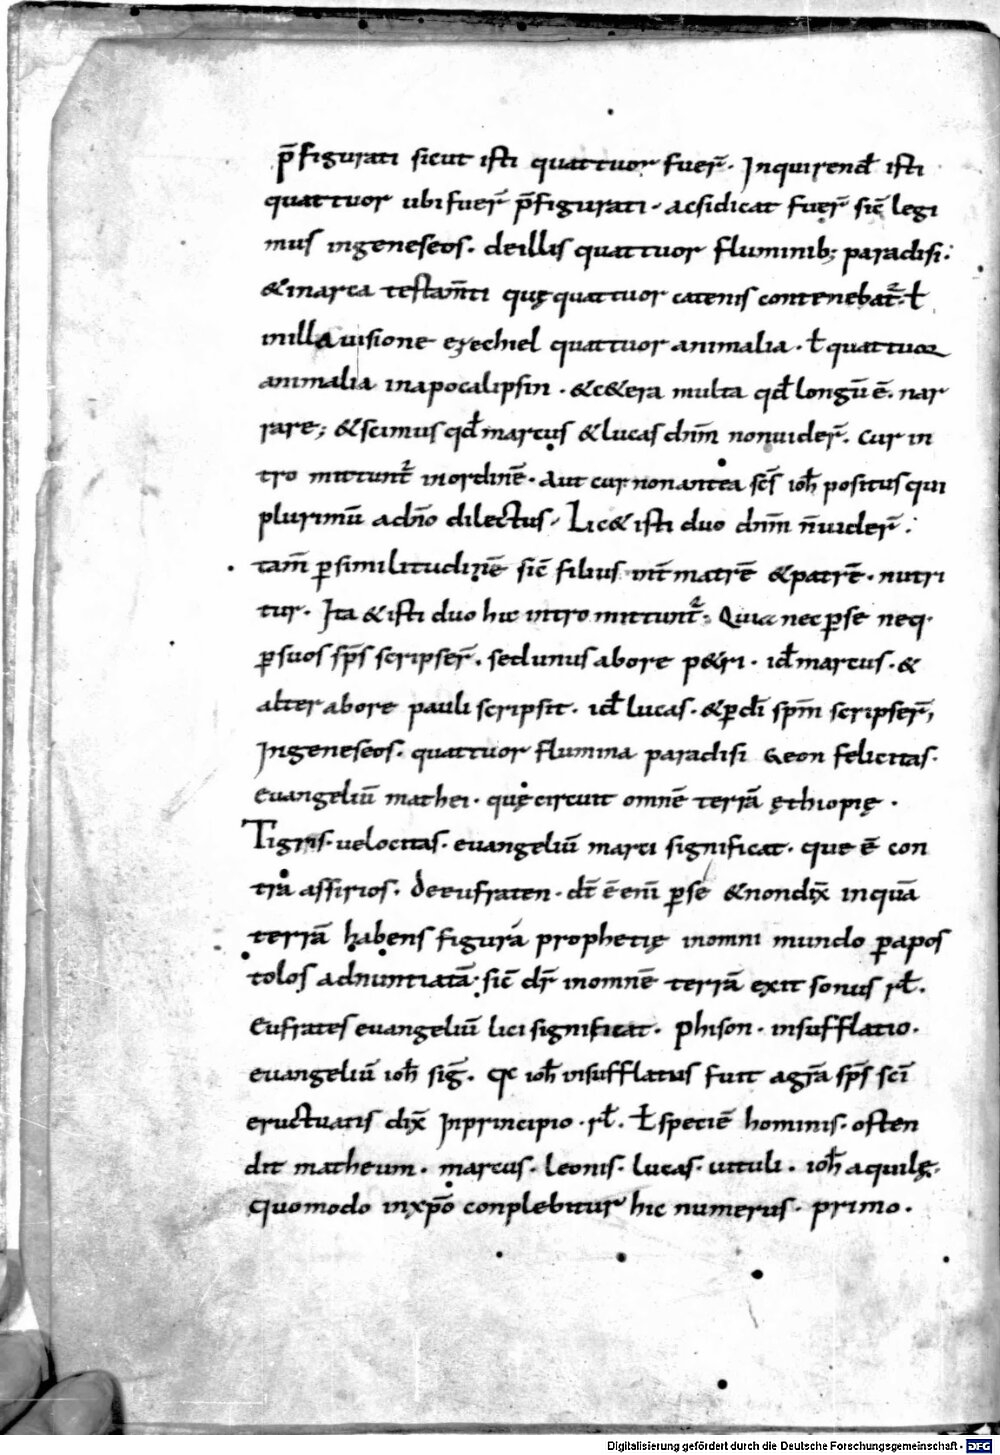 p̄figurati sicut isti quattuor fuer̄. Inquirend̄ isti
quattuor ubi fuer̄ p̄figurati. acsidicat fuer̄ sic̄ legi
mus ingeneseos. deillis quattuor fluminib; paradisi:
& inarca testam̄ti quę quattuor catenis contenebat̄. ł
inilla uisione ezechiel quattuor animalia. ł quattuor
animalia inapocalipsin. & c&era multa qđ longū ē. nar
rare; & scimus qđ marcus & lucas dnm̄ nonuider̄. cur in
tro mittunt̄ inordinē. aut cur nonantea scs̄ ioh̄ positus qui
plurimū adn̄o dilectus. Lic& isti duo dnm̄ n̄uider̄:
tam̄ p̱similitudinē sic̄ filius int̄ matrē & patrē. nutri
tur. Ita & isti duo hic intromittunt̄. Quia nec p̱se neq.
p̱suos sps̄ scripser̄. sed unus abore p&ri. iđ marcus. &
alter abore pauli scripsit. iđ lucas. & p̱ dī spm̄ scripser̄,
Ingeneseos. quattuor flumina paradisi Geon felicitas.
euangeliū mathei. quę circuit omnē terrā ęthiopię.
Tigris. uelocitas. euangeliū marci significat. que ē con
tra assirios. De eufraten. dt̄ ē enī p̱se & nondix̄ inquā
terrā habens figurā prophetię inomni mundo p̱apos
tolos adnuntiatā. sic̄ dr̄ inomnē terrā exit sonus rł.
Eufrates euangeliū luci significat. Phison. insufflatio.
euangeliū ioh̄ siḡ. Qc ioh̄ insufflatus fuit agr̄a sps̄ scī
eructuatis dix̄ Inprincipio. rł. Ł speciē hominis. osten
dit matheum. marcus. leonis. lucas. uituli. ioh̄ aquilę.
quomodo inxp̄o conplebitur hic numerus. primo.
Digitalisierung gefördert durch die Deutsche Forschungsgemeinschaft - DFG